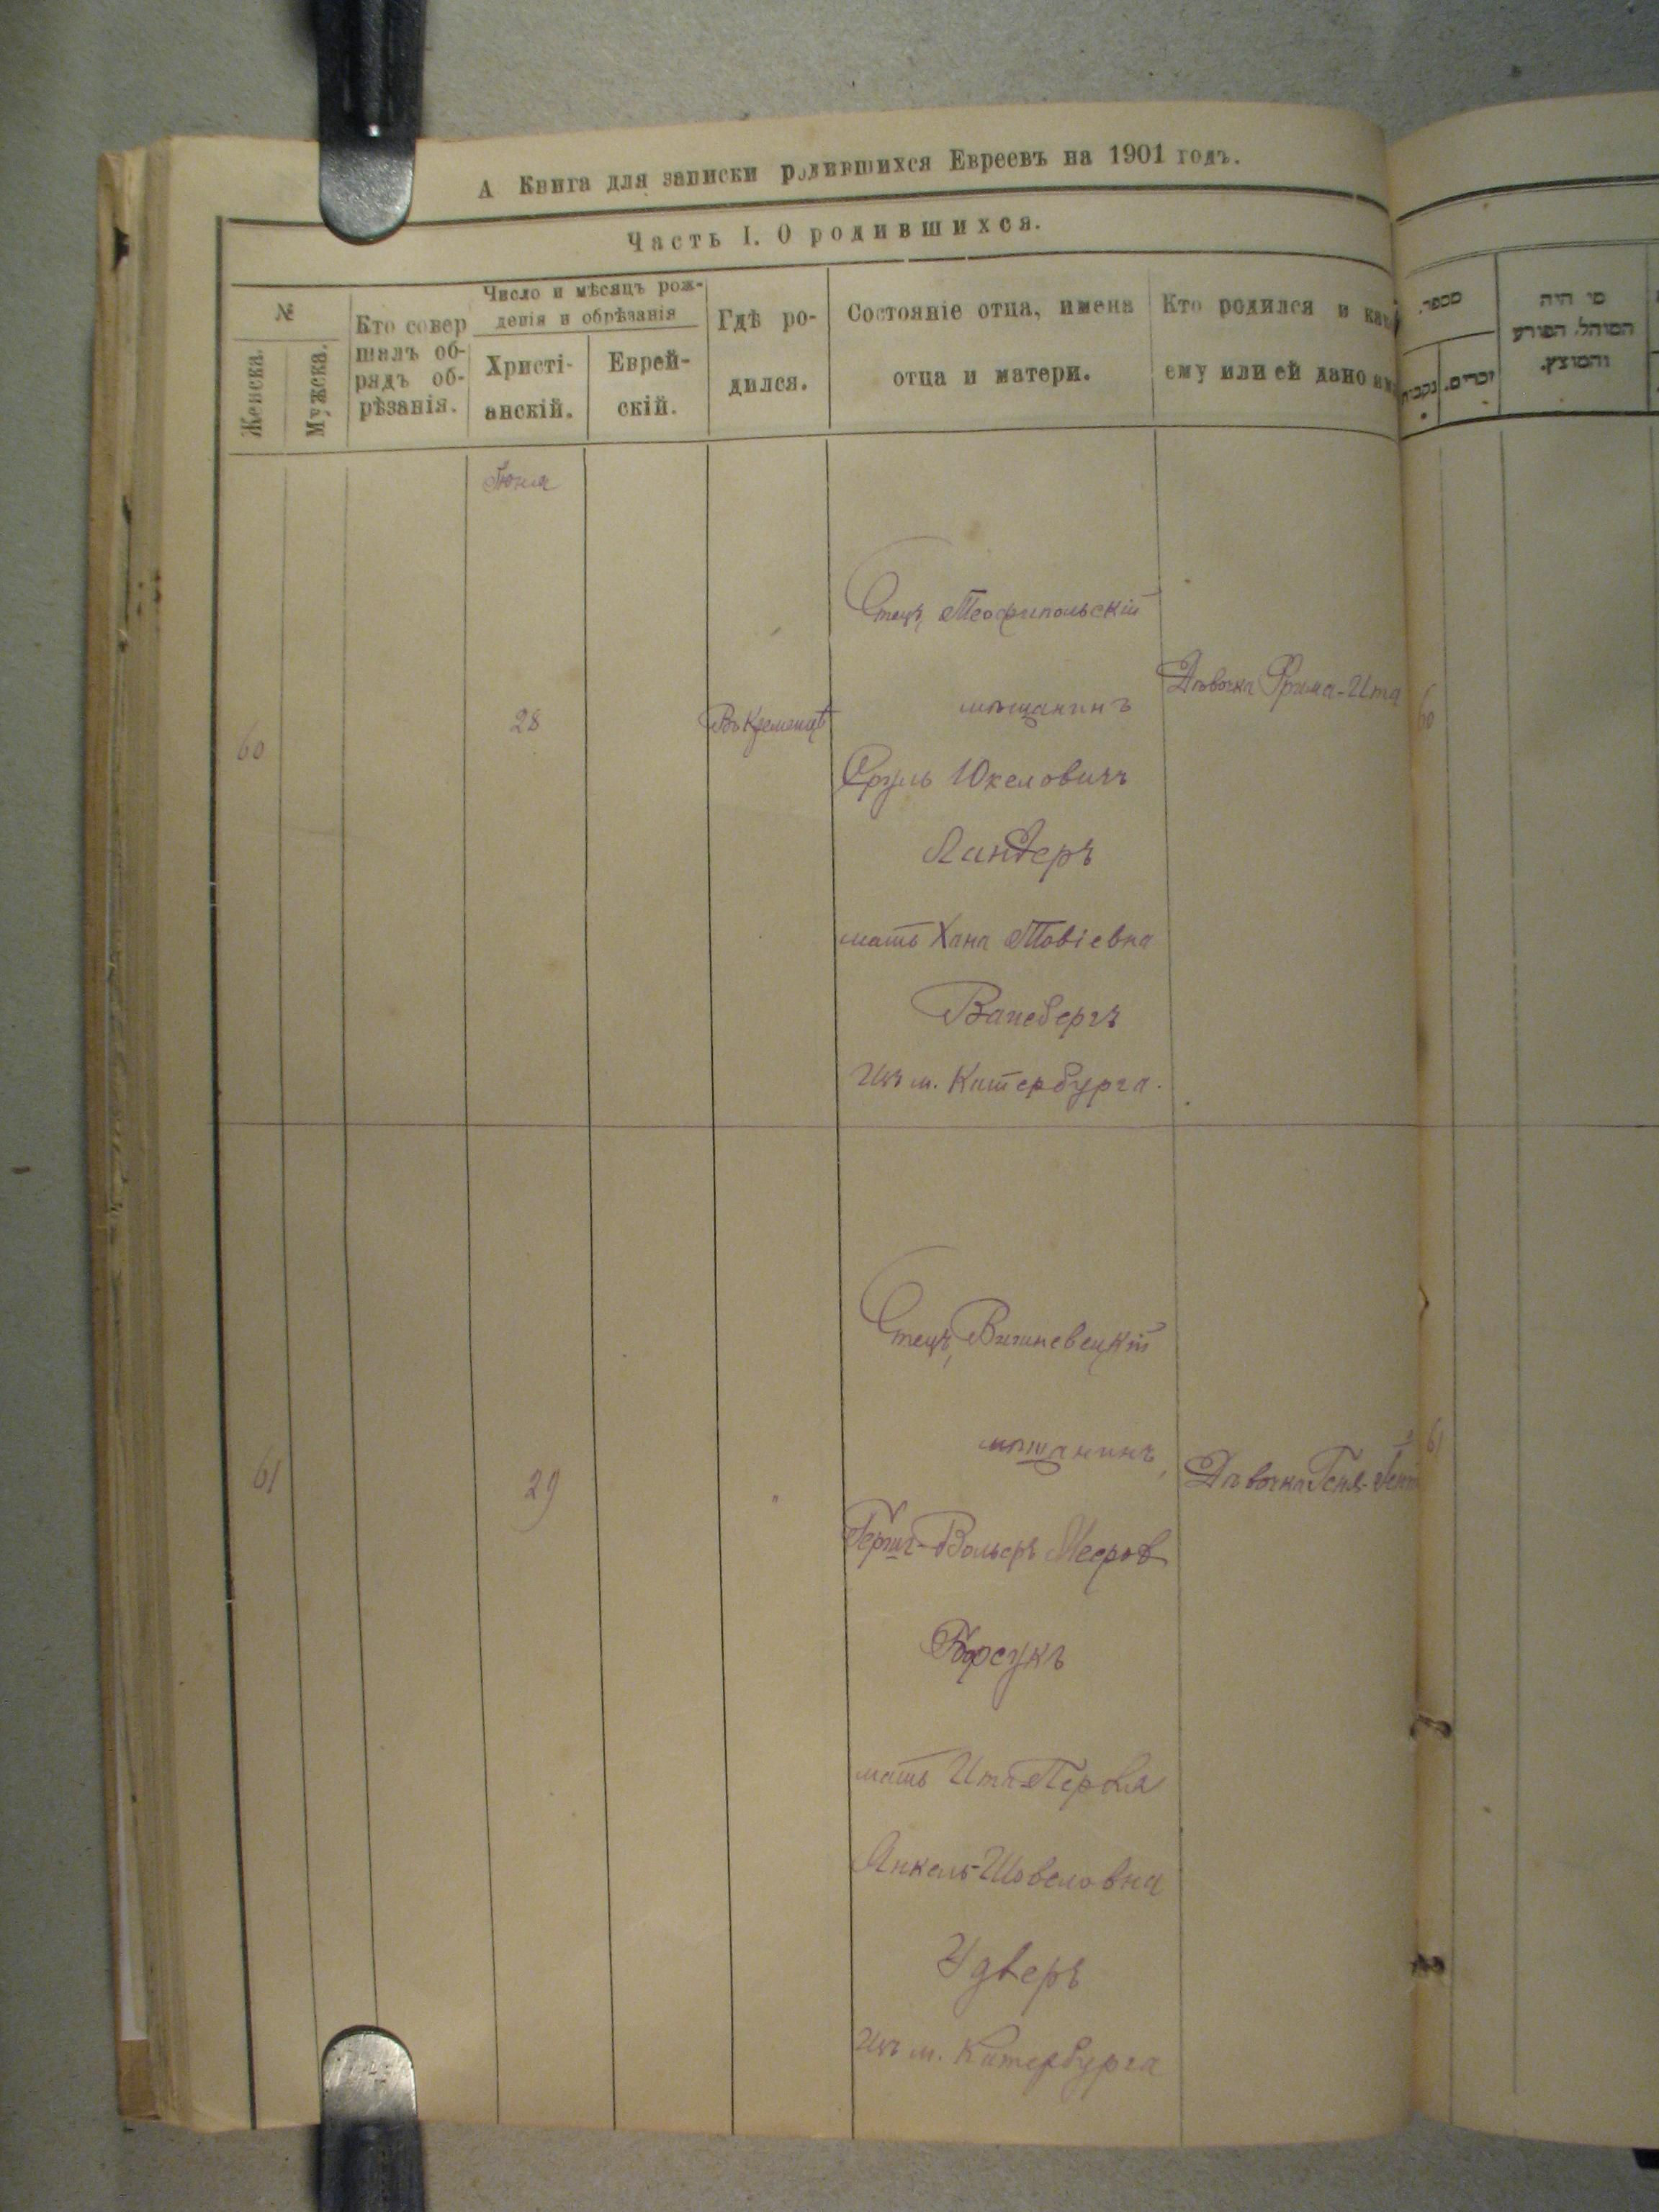 А Книга для записки родившихся Евреевъ на 1901 годъ.
Часть I. О родившихся.
№
Женска.
Мужска.
Кто совер
шалъ об-
рядъ об-
рѣзанія.
Число и мѣсяцъ рож-
денія и обрѣзанія
Христі-
анскій.
Еврей-
скій.
Гдѣ ро-
дился.
Состояніе отца, имена
отца и матери.
Кто родился и как
ему или ей дано им
מספר.
נקבות
זכרים.
מי היה
המוהל, הפורע
והמוצץ.
Іюня
60
28
Въ Кременцѣ
Отецъ, Теофипольскій
мѣщанинъ
Сруль Юкеловичъ
Ландеръ
мать Хана Товіевна
Ванебергъ
Изъ м. Катербурга.
Дѣвочка Фрима-Ита
60
61
29
"
Отецъ, Вишневецкій
мѣщанинъ,
Гершъ-Вольфъ Мееров
Борсукъ
мать Ита-Перля
Янкель-Шовеловна
Удверъ
Изъ м. Катербурга
Дѣвочка Геня-
61